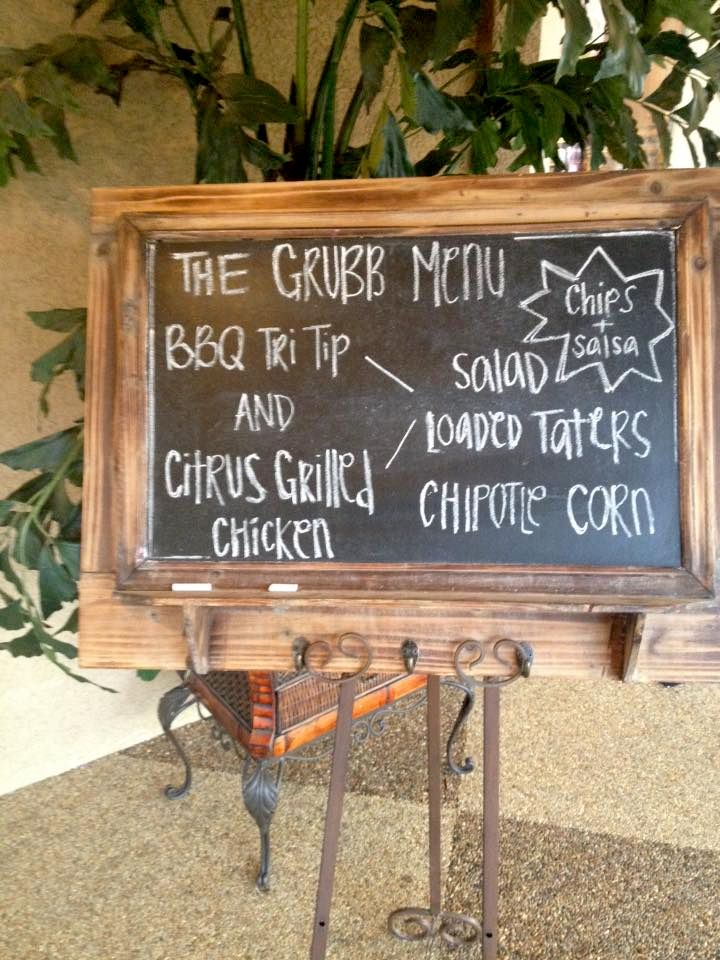 THE GRUBB MENU
BBQ TRI TIP
AND
CITRUS GRILLED
CHICKEN
Chips
+
salsa
SALAD
LOADED TATERS
CHIPOTLE CORN